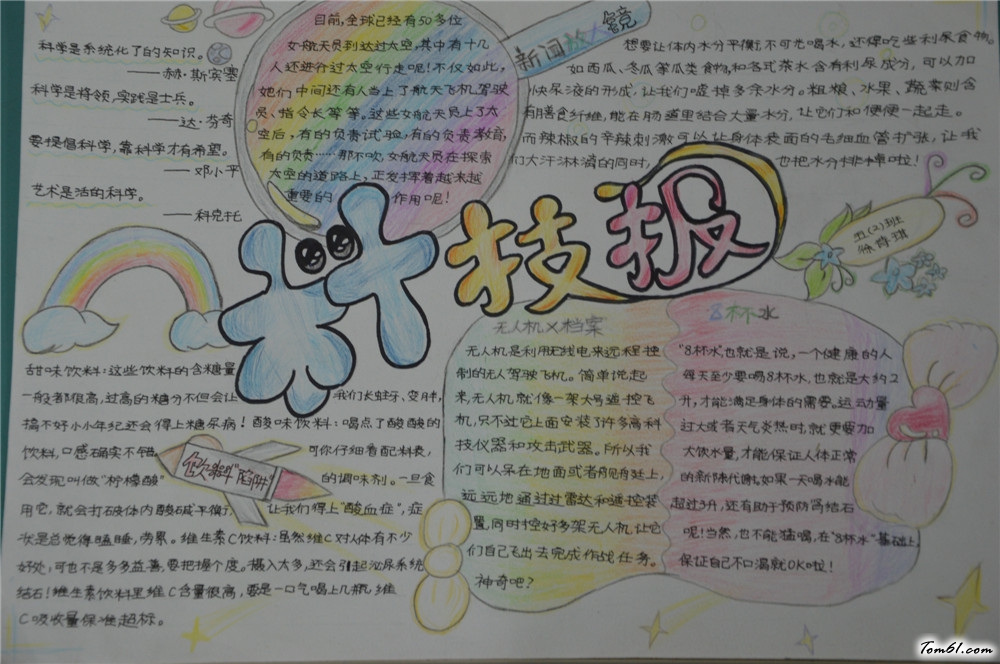 科学是系统化了的知识。
——赫·斯宾塞
科学是将领,实践是士兵。
——达·芬奇
要提倡科学,靠科学才有希望。
——邓小平
艺术是活的科学。
——科克托
目前,全球已经有50多位
女航天员到达过太空,其中有十几
人还进行过太空行走呢!不仅如此,
她们中间还有人当上了航天飞机驾驶
员、指令长等等。这些女航天员上了太
空后,有的负责试验,有的负责教育,
有的负责……那不,女航天员在探索
太空的道路上,正发挥着越来越
重要的作用呢!
新闻放大镜
想要让体内水分平衡,不可光喝水,还得吃些利尿食物。
如西瓜、冬瓜等瓜类食物,和各式茶水含有利尿成分,可以加
快尿液的形成,让我们嘘掉多余水分。粗粮、水果、蔬菜则含
有膳食纤维,能在肠道里结合大量水分,让它们和便便一起走。
而辣椒的辛辣刺激可以让身体表面的毛细血管扩张,让我
们大汗淋漓的同时,也把水分排掉啦!
科技报
五(2)班
甜味饮料:这些饮料的含糖量
一般都很高,过高的糖分不但会让我们长蛀牙、变胖,
搞不好小小年纪还会得上糖尿病!酸味饮料:喝点了酸酸的
饮料,口感确实不错。可你仔细看配料表,
会发现叫做“柠檬酸”的调味剂。一旦食
用它,就会打破体内酸碱平衡,让我们得上“酸血症”,症
状是总觉得瞌睡,劳累。维生素C饮料:虽然维C对人体有不少
好处,可也不是多多益善,要把握个度。摄入太多,还会引起泌尿系统
结石!维生素饮料里维C含量很高,要是一口气喝上几瓶,维
C吸收量保准超标。
饮料“陷阱”
无人机X档案
无人机是利用无线电来远程控
制的无人驾驶飞机。简单说起
来,无人机就像一架大号遥控飞
机,只不过它上面安装了许多高科
技仪器和攻击武器。所以我
们可以呆在地面或者舰艇上,
远远地通过过雷达和遥控装
置,同时控好多架无人机,让它
们自己飞出去完成作战任务。
神奇吧?
8杯水
“8杯水”也就是说,一个健康的人
每天至少要喝8杯水,也就是大约2
升,才能满足身体的需要。运动量
过大或者天气炎热时,就更要加
大饮水量,才能保证人体正常
的新陈代谢。如果一天喝水能
超过3升,还有助于预防肾结石
呢!当然,也不能猛喝,在“8杯水”基础上,
保证自己不口渴就OK啦!
Tom61.com